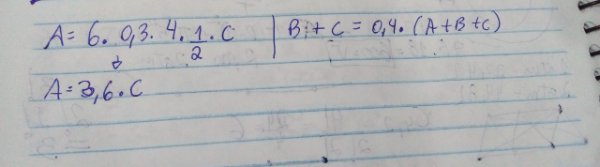 A = 6 . 0,3 . 4 . 1/2 . C | B + C = 0,4 . (A + B + C)
↓
A = 3,6 . C